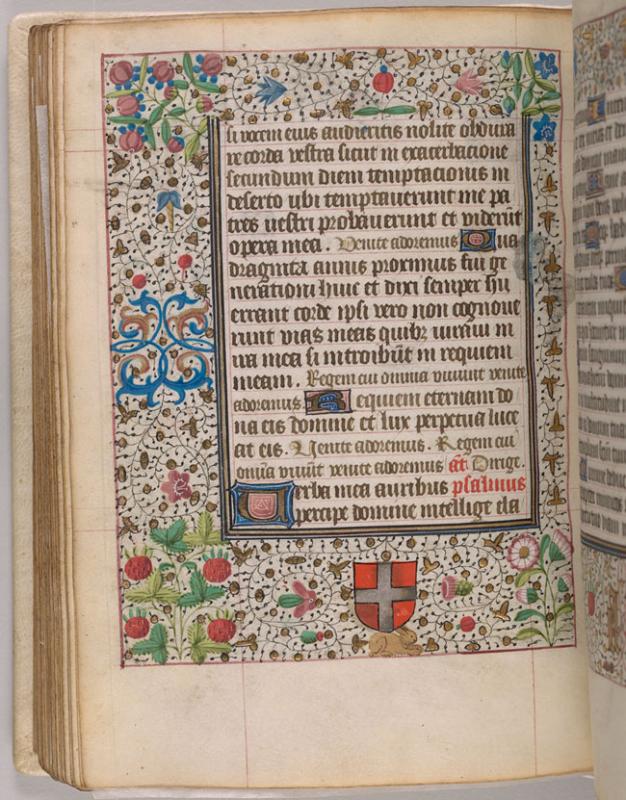 si vocem eius audieritis nolite obdura
re corda vestra sicut in exacerbacione
secundum diem temptacionis in
deserto ubi temptaverunt me pa
tres vestri probaverunt et viderūt
opera mea. Venite adoremus Qua
draginta annis proximus fui ge
nerationi huic et dixi semper hii
errant corde ipsi vero non cognove
runt vias meas quibz iuravi in
ira mea si introibūt in requiem
meam. Regem cui omnia vivunt venite
adoremus. Requiem eternam do
na eis domine et lux perpetua luce
at eis. Venite adoremus. Regem cui
omīa vivūt venite adoremus āt. Dirige.
Verba mea auribus psalmus
percipe domine intellige cla